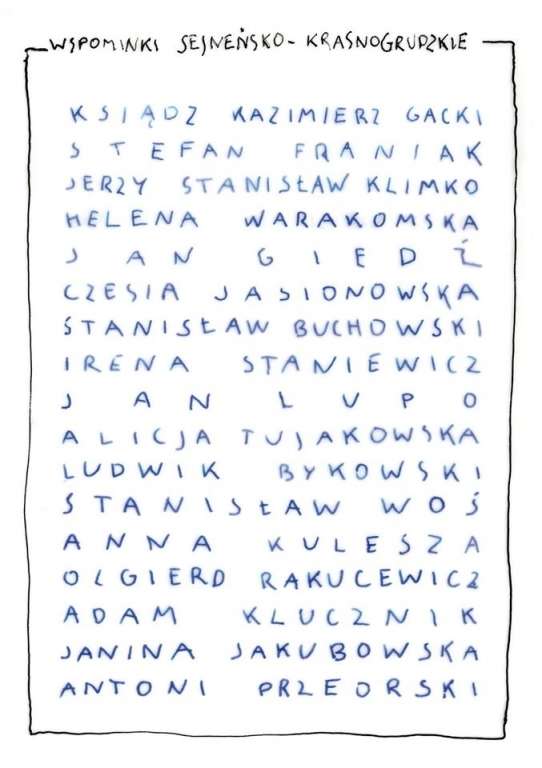 WSPOMINKI SEJNEŃSKO-KRASNOGRUDZKIE
KSIĄDZ KAZIMIERZ GACKI
STEFAN FRANIAK
JERZY STANISŁAW KLIMKO
HELENA WARAKOMSKA
JAN GIEDŹ
CZESIA JASIONOWSKA
STANISŁAW BUCHOWSKI
IRENA STANIEWICZ
JAN LUPO
ALICJA TUJAKOWSKA
LUDWIK BYKOWSKI
STANISŁAW WOŚ
ANNA KULESZA
OLGIERD RAKUCEWICZ
ADAM KLUCZNIK
JANINA JAKUBOWSKA
ANTONI PRZEORSKI